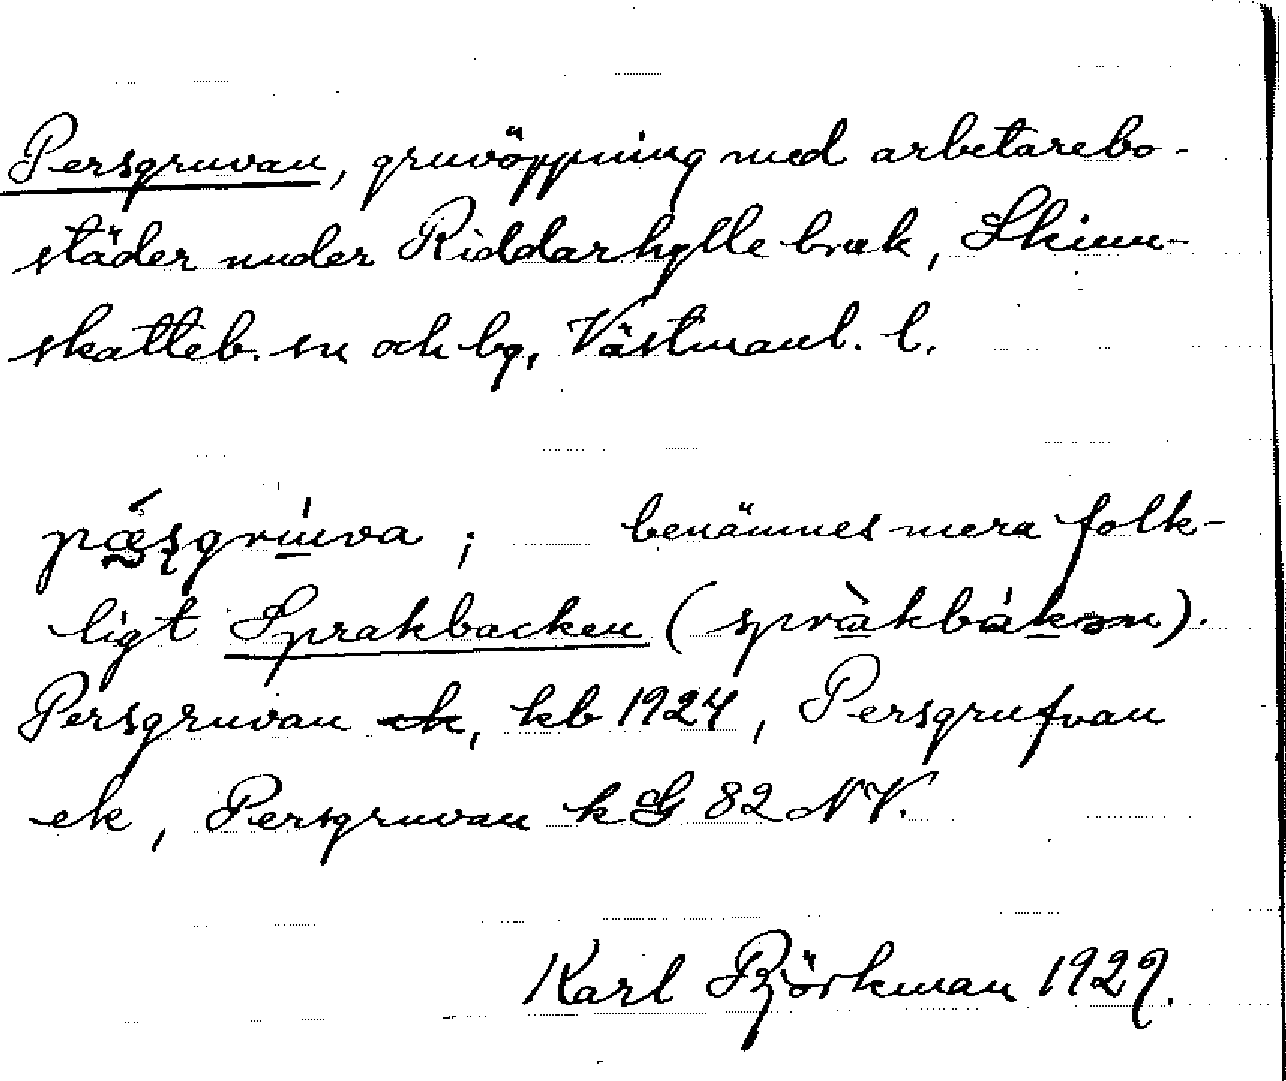 Persgruvan, gruvöppning med arbetarebo-
städer under Riddarhytte bruk, Skinn-
skatteb. sn och bg, Västmanl. l.
pæ̀sgrúva ; benämnes mera folk-
ligt Sprakbacken (spràkbákən).
Persgruvan, kb 1924, Persgrufvan
ek, Persgruvan k G 82 NV.
Karl Björkman 1929.